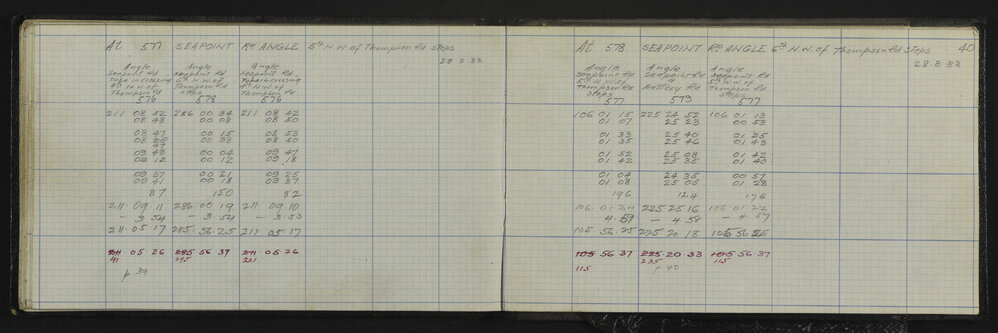 At 577 SEAPOINT Rd ANGLE 5th N.W. of Thompson Rd steps
28.3.83
Angle Angle Angle
Seapoint Rd Seapoint Rd Seapoint Rd
Tube increasing 6th N.W. of Tube increasing
4th N.W. of Thompson Rd 4th N.W. of
Thompson Rd steps Thompson Rd
576 578 576
211 08 52 286 00 34 211 08 42
08 48 00 08 08 50
08 47 00 15 08 53
00 38 08 50
09 43 00 04 09 47
09 12 00 12 09 18
09 37 00 21 09 25
09 41 00 18 09 37
87 150 82
211.09.11 286.00.19 211.09.10
- 3.54 - 3.54 - 3.53
211.05.17 285.56.25 211.05.17
211 05 26 285 56 37 211 05 26
p 39
At 578 SEAPOINT Rd ANGLE 6th N.W. of Thompson Rd steps 40
28.3.83
Angle Angle Angle
Seapoint Rd Seapoint Rd Seapoint Rd
5th N.W. of 5th N.W. of
Thompson Rd Battery Rd Thompson Rd
steps steps
577 579 577
106 01 15 225 24 52 106 01 13
01 07 25 23 00 53
01 33 25 40 01 25
01 35 25 46 01 43
01 52 25 08 01 42
01 42 25 35 01 40
01 04 24 35 00 57
01 08 25 05 01 23
196 124 176
106.01.24 225.25.16 106.01.22
- 4.58 - 4.57
105 56.25 225.20.18 105 56 25
105 56 37 225.20.33 105 56.37
115 235 p 40 115